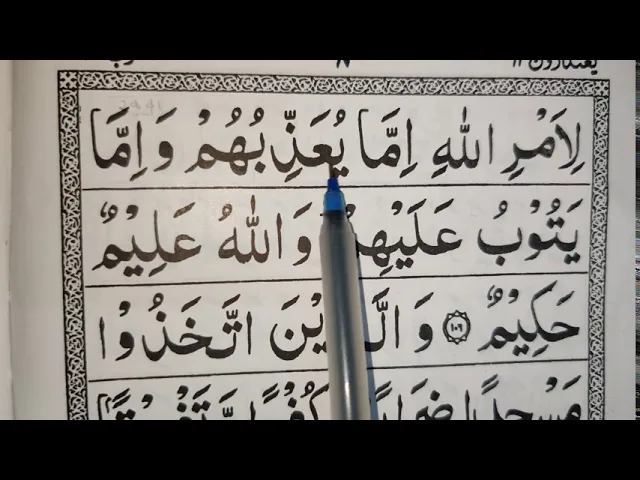 یعتذرون ١١
لِاَمْرِ اللّٰهِ اِمَّا یُعَذِّبُهُمْ وَ اِمَّا
یَتُوْبُ عَلَیْهِمْ وَ اللّٰهُ عَلِیْمٌ
حَكِیْمٌ ۝١٠٦ وَ الَّذِیْنَ اتَّخَذُوْا
مَسْجِدًا ضِرَارًا